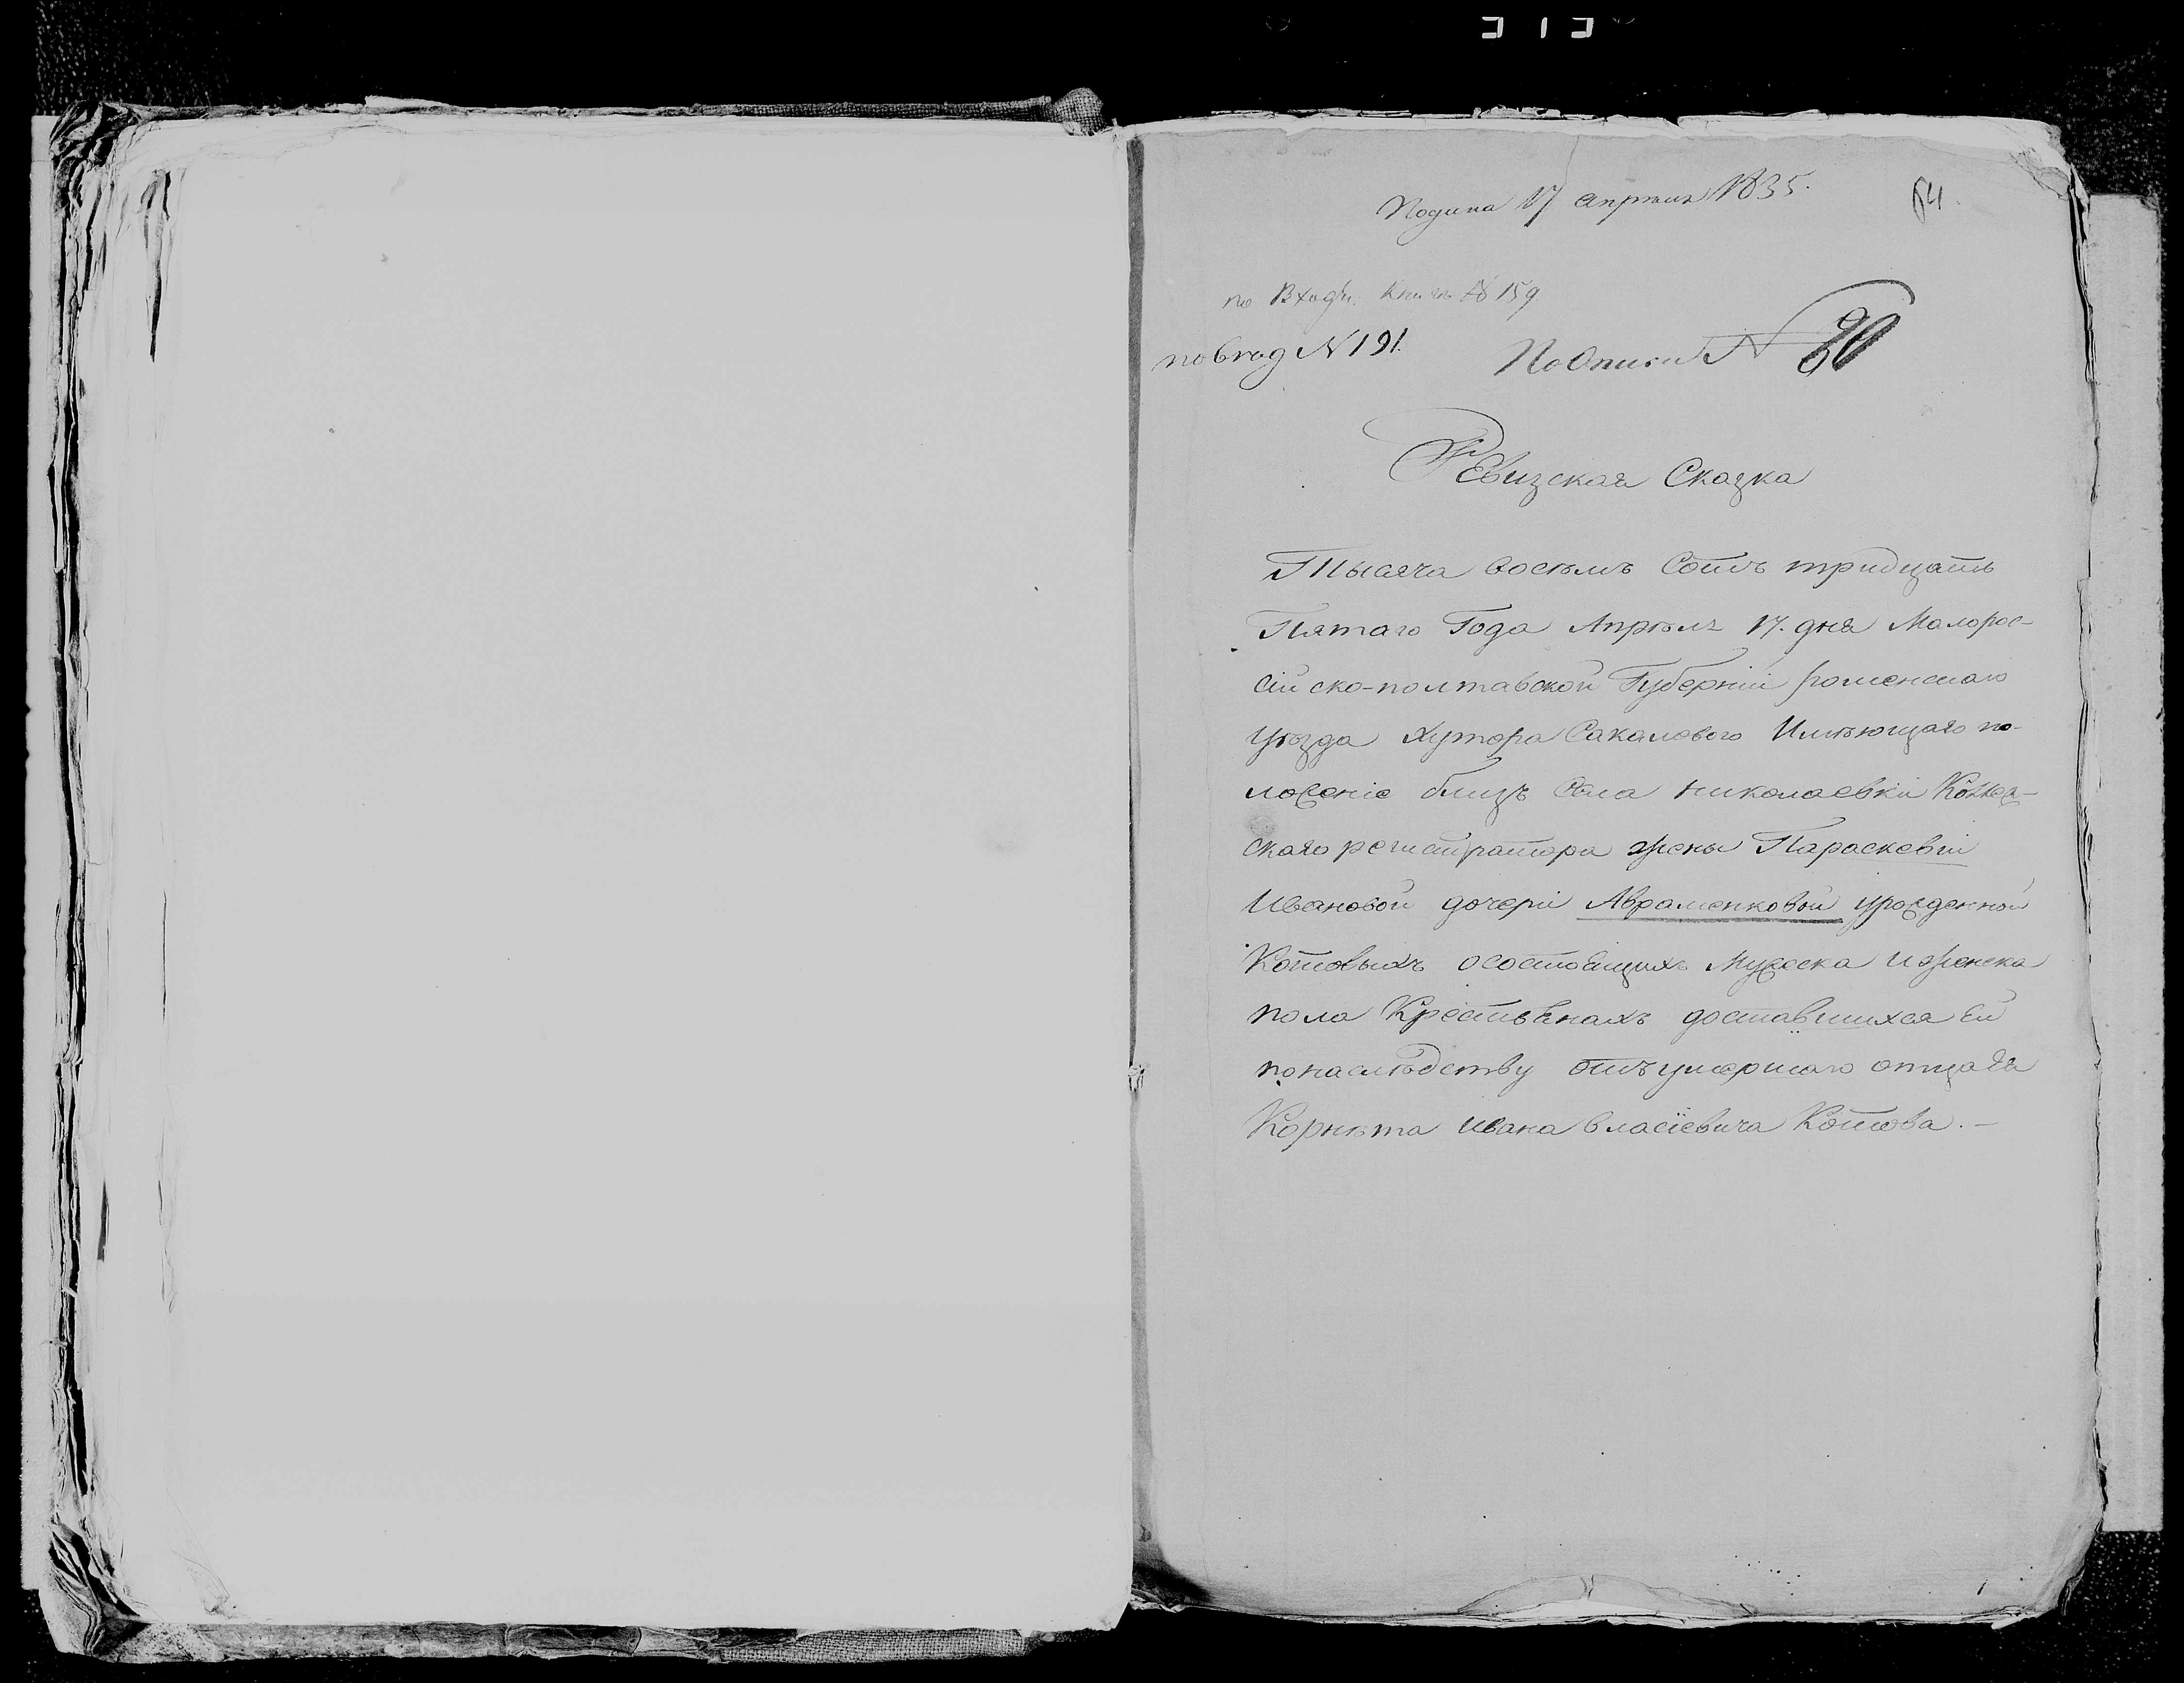 313
Подана 17 апреля 1835.
64
по Входящ. Книгѣ № 159
по вход № 191.
По Описи № 80
Ревизская Сказка
Тысяча восѣмъ Сотъ тридцать
Пятаго Года Апрѣля 17. дня Малорос-
сійско-полтавской Губерніи роменскаго
уѣзда Хутора Сакалового Имѣющаго по-
ложеніе близъ Села николаевки
скаго регистратора жены Параскевіи
Ивановой дочери Авраменковой урожденной
Котовыхъ осостоящихъ Мужеска иженска
пола Крестьянахъ доставшихся Ей
понаслѣдству отъумершаго отцаЕя
Корнѣта Ивана власіевича Котова.-